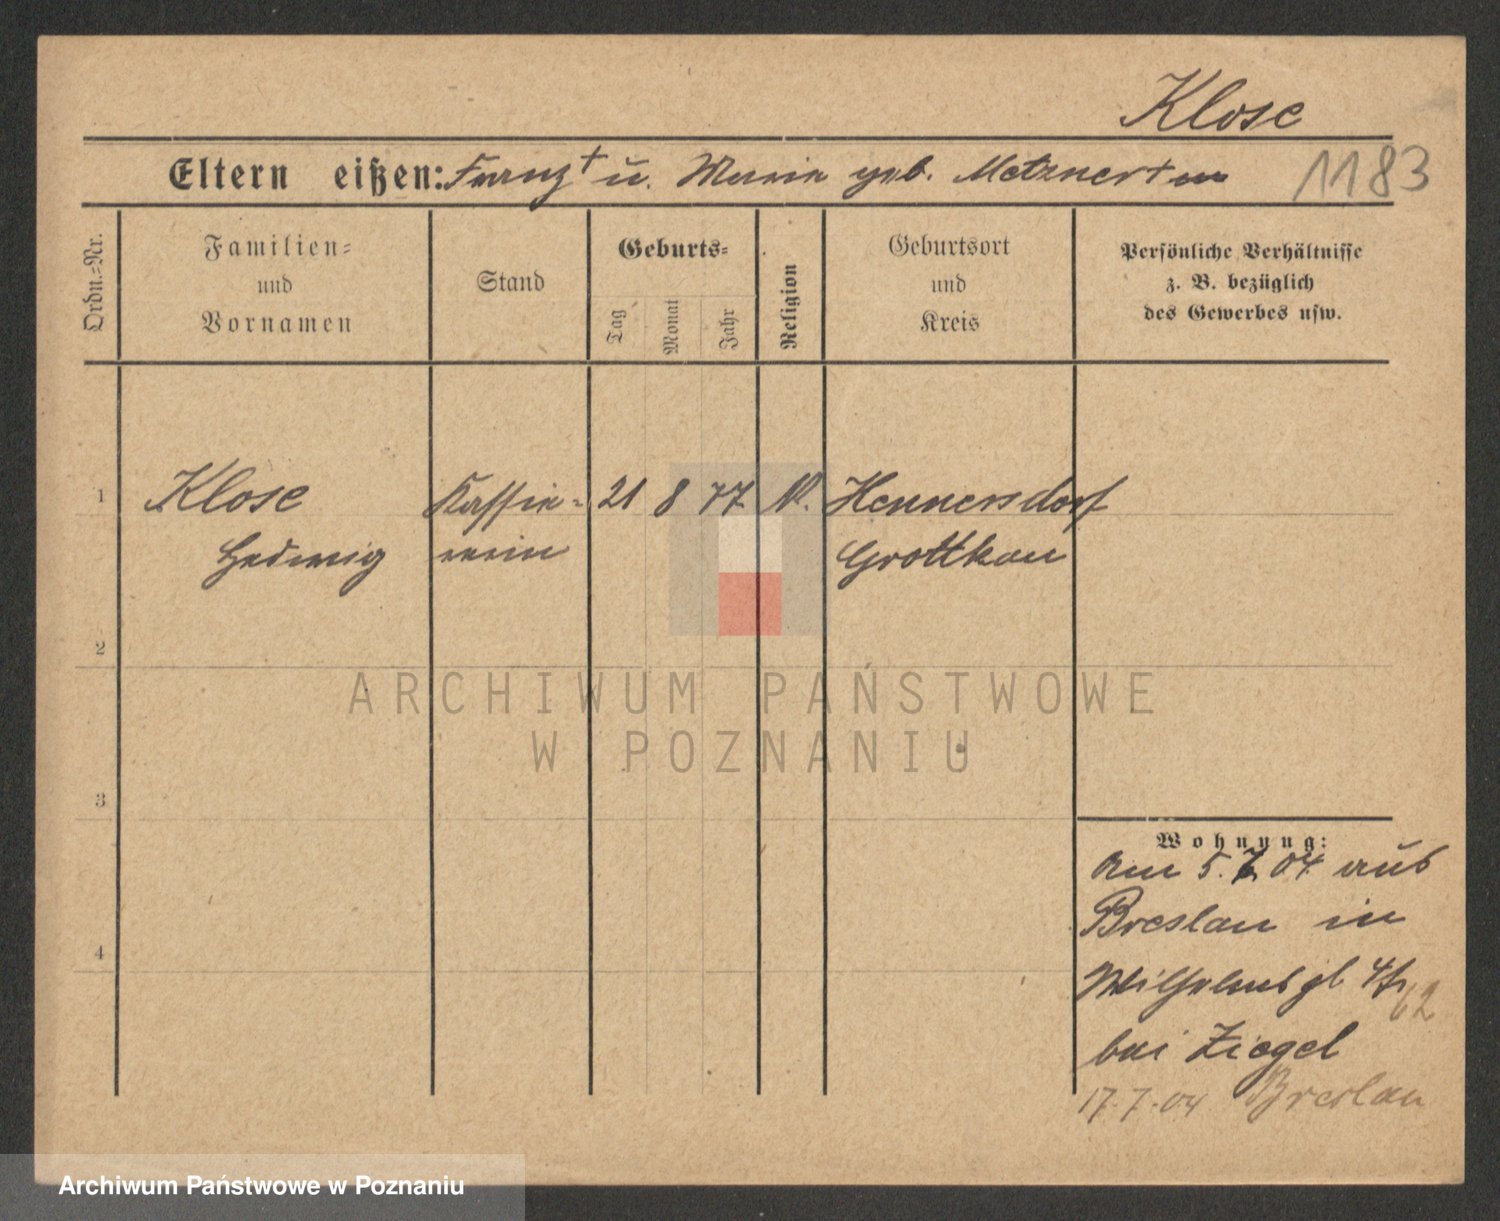 Klose
Eltern eißen: Franz † u. Marie geb. Metzner †
1183
Ordn.=Nr.
Familien=
und
Vornamen
Stand
Geburts=
Tag
Monat
Jahr
Religion
Geburtsort
und
Kreis
Persönliche Verhältnisse
z. B. bezüglich
des Gewerbes usw.
1
Klose
Hedwig
Kassie=
rerin
21
8
77
K.
Hennersdorf
Grottkau
2
3
4
Wohnung:
Am 5. 7. 04 aus
Breslau in
Wilhelmspl 4
bei Ziegel
17.7.04 Breslau
ARCHIWUM PAŃSTWOWE
W POZNANIU
Archiwum Państwowe w Poznaniu